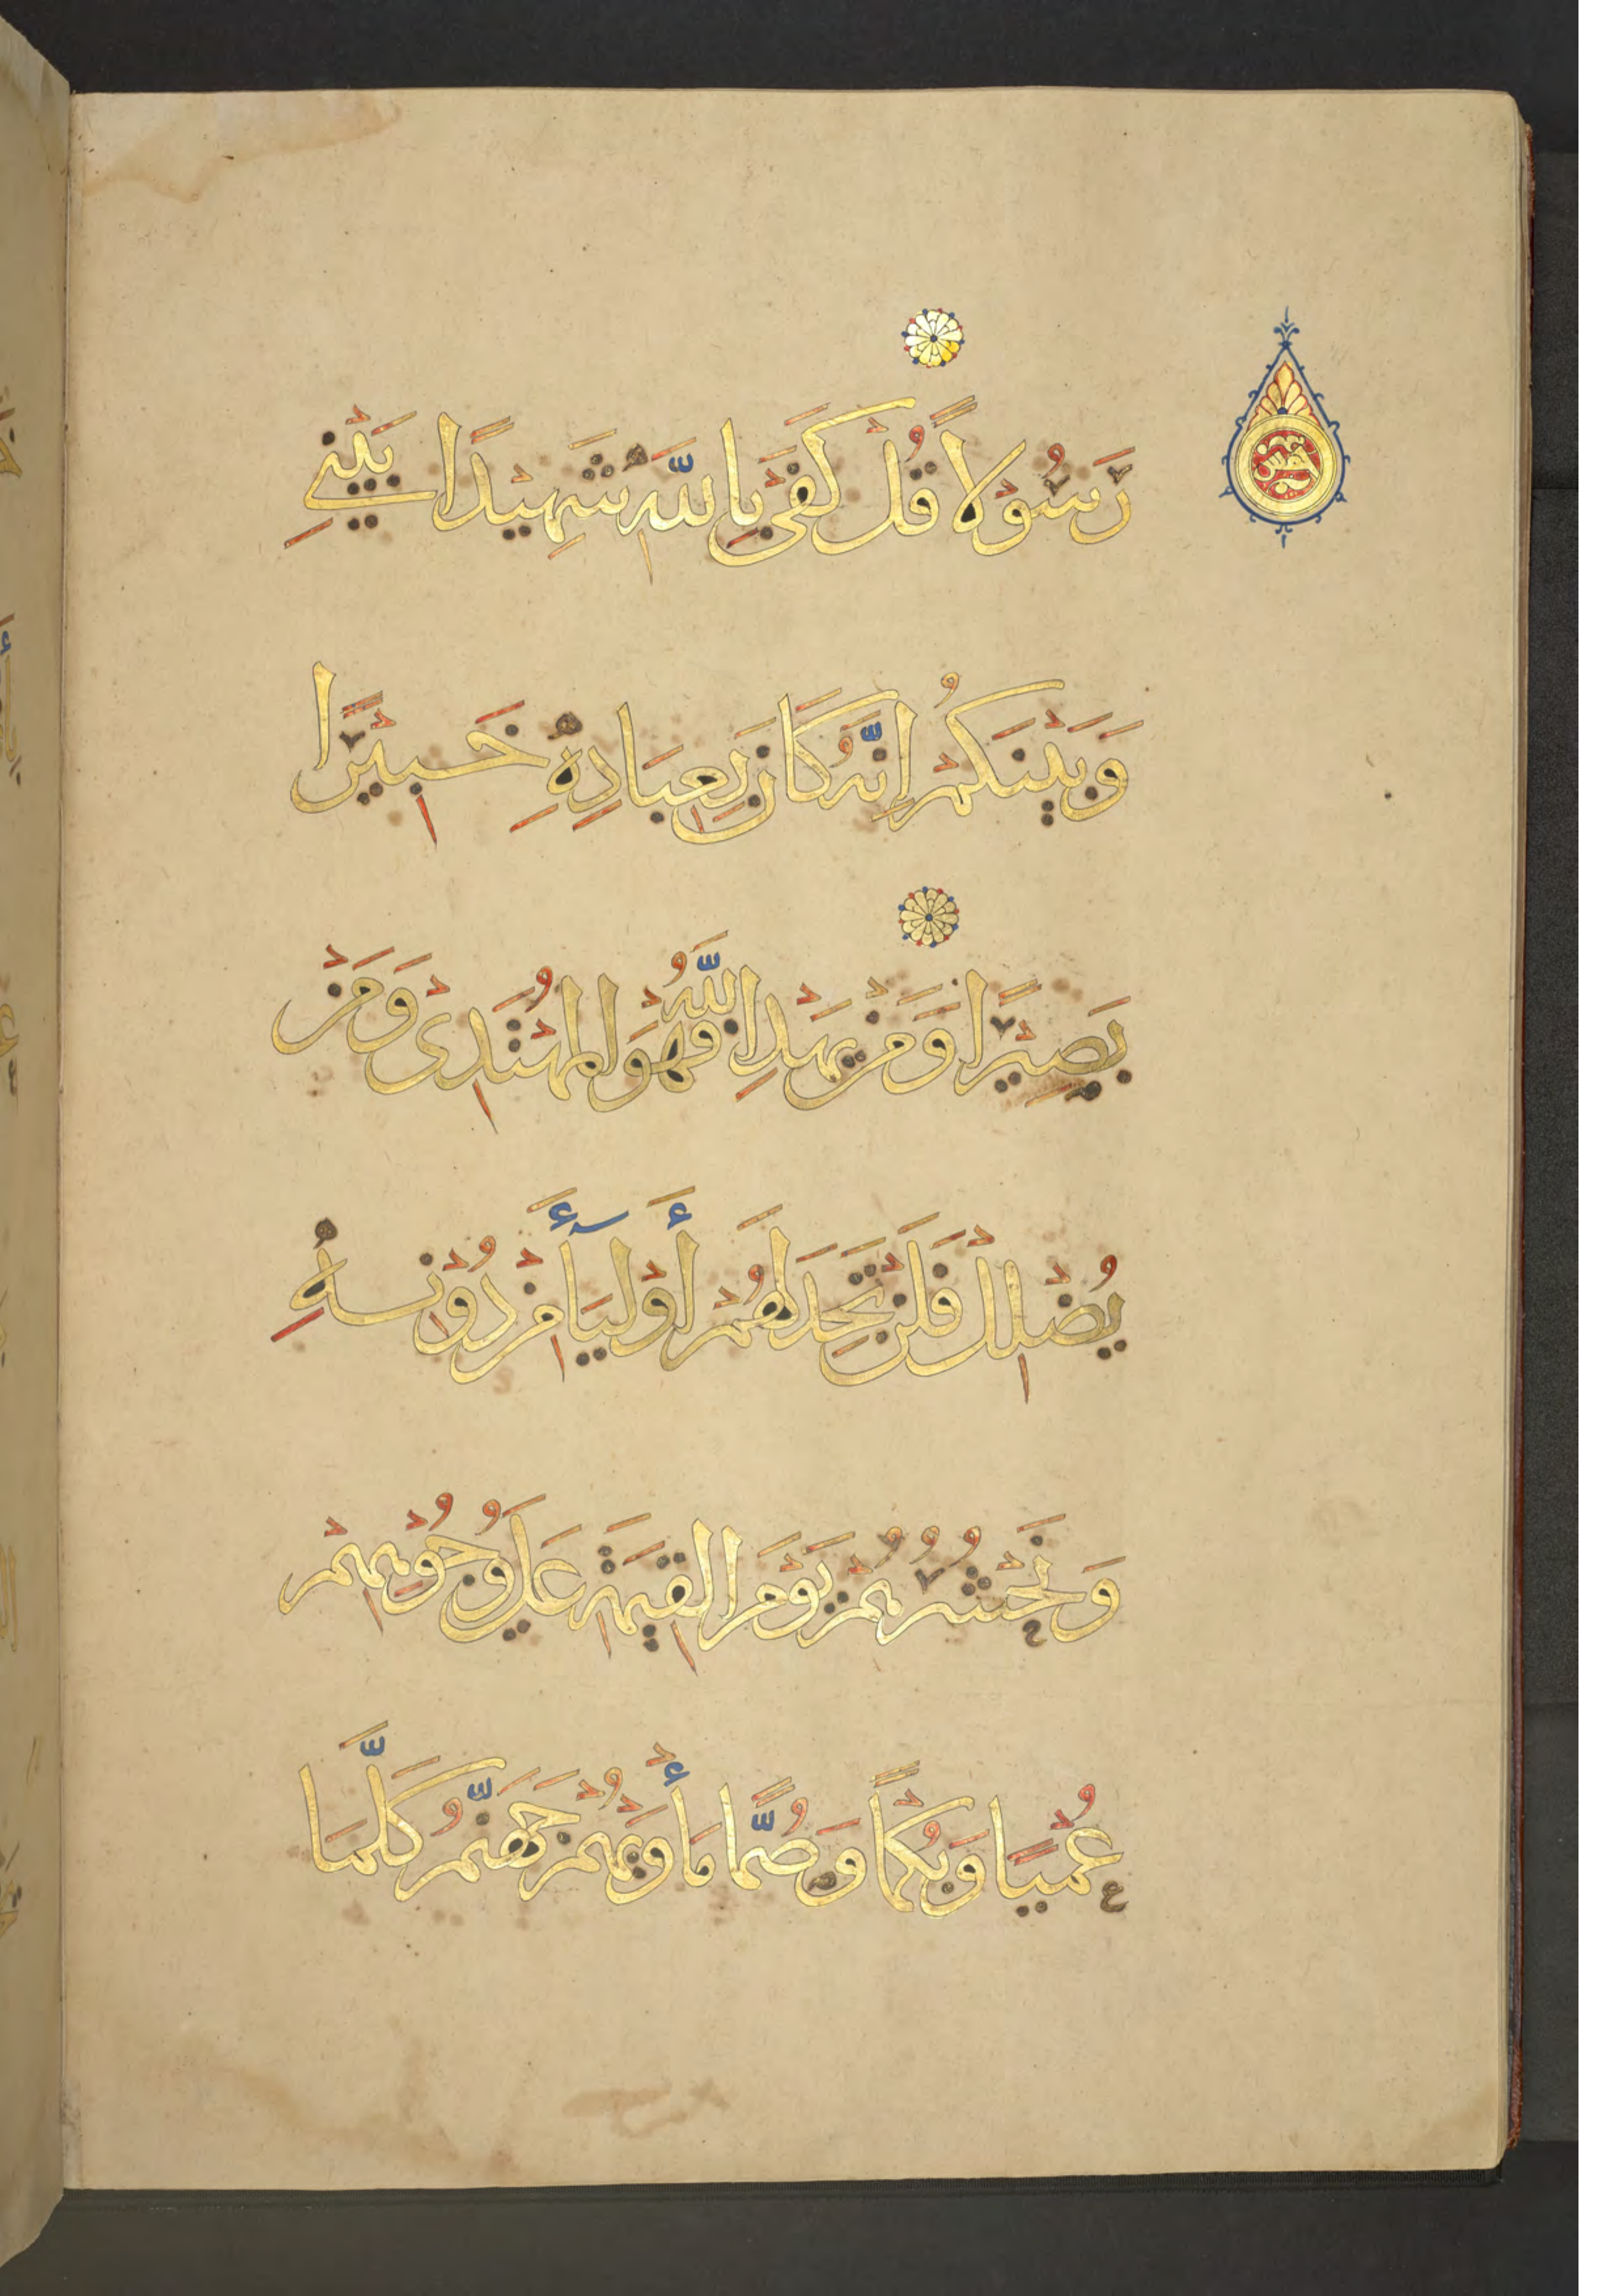 رَسُوْلًا قُلْ كَفَىٰ بِاللَّهِ شَهِيْدًا بَيْنِي
وَبَيْنَكُمْ إِنَّهُ كَانَ بِعِبَادِهِ خَبِيْرًا
بَصِيْرًا وَمَنْ يَهْدِ اللَّهُ فَهُوَ الْمُهْتَدِىْ وَمَنْ
يُضْلِلْ فَلَنْ تَجِدَ لَهُمْ أَوْلِيَآءَ مِنْ دُوْنِهِ
وَنَحْشُرُهُمْ يَوْمَ الْقِيٰمَةِ عَلَىٰ وُجُوْهِهِمْ
عُمْيًا وَبُكْمًا وَصُمًّا مَأْوٰيهُمْ جَهَنَّمُ كُلَّمَا